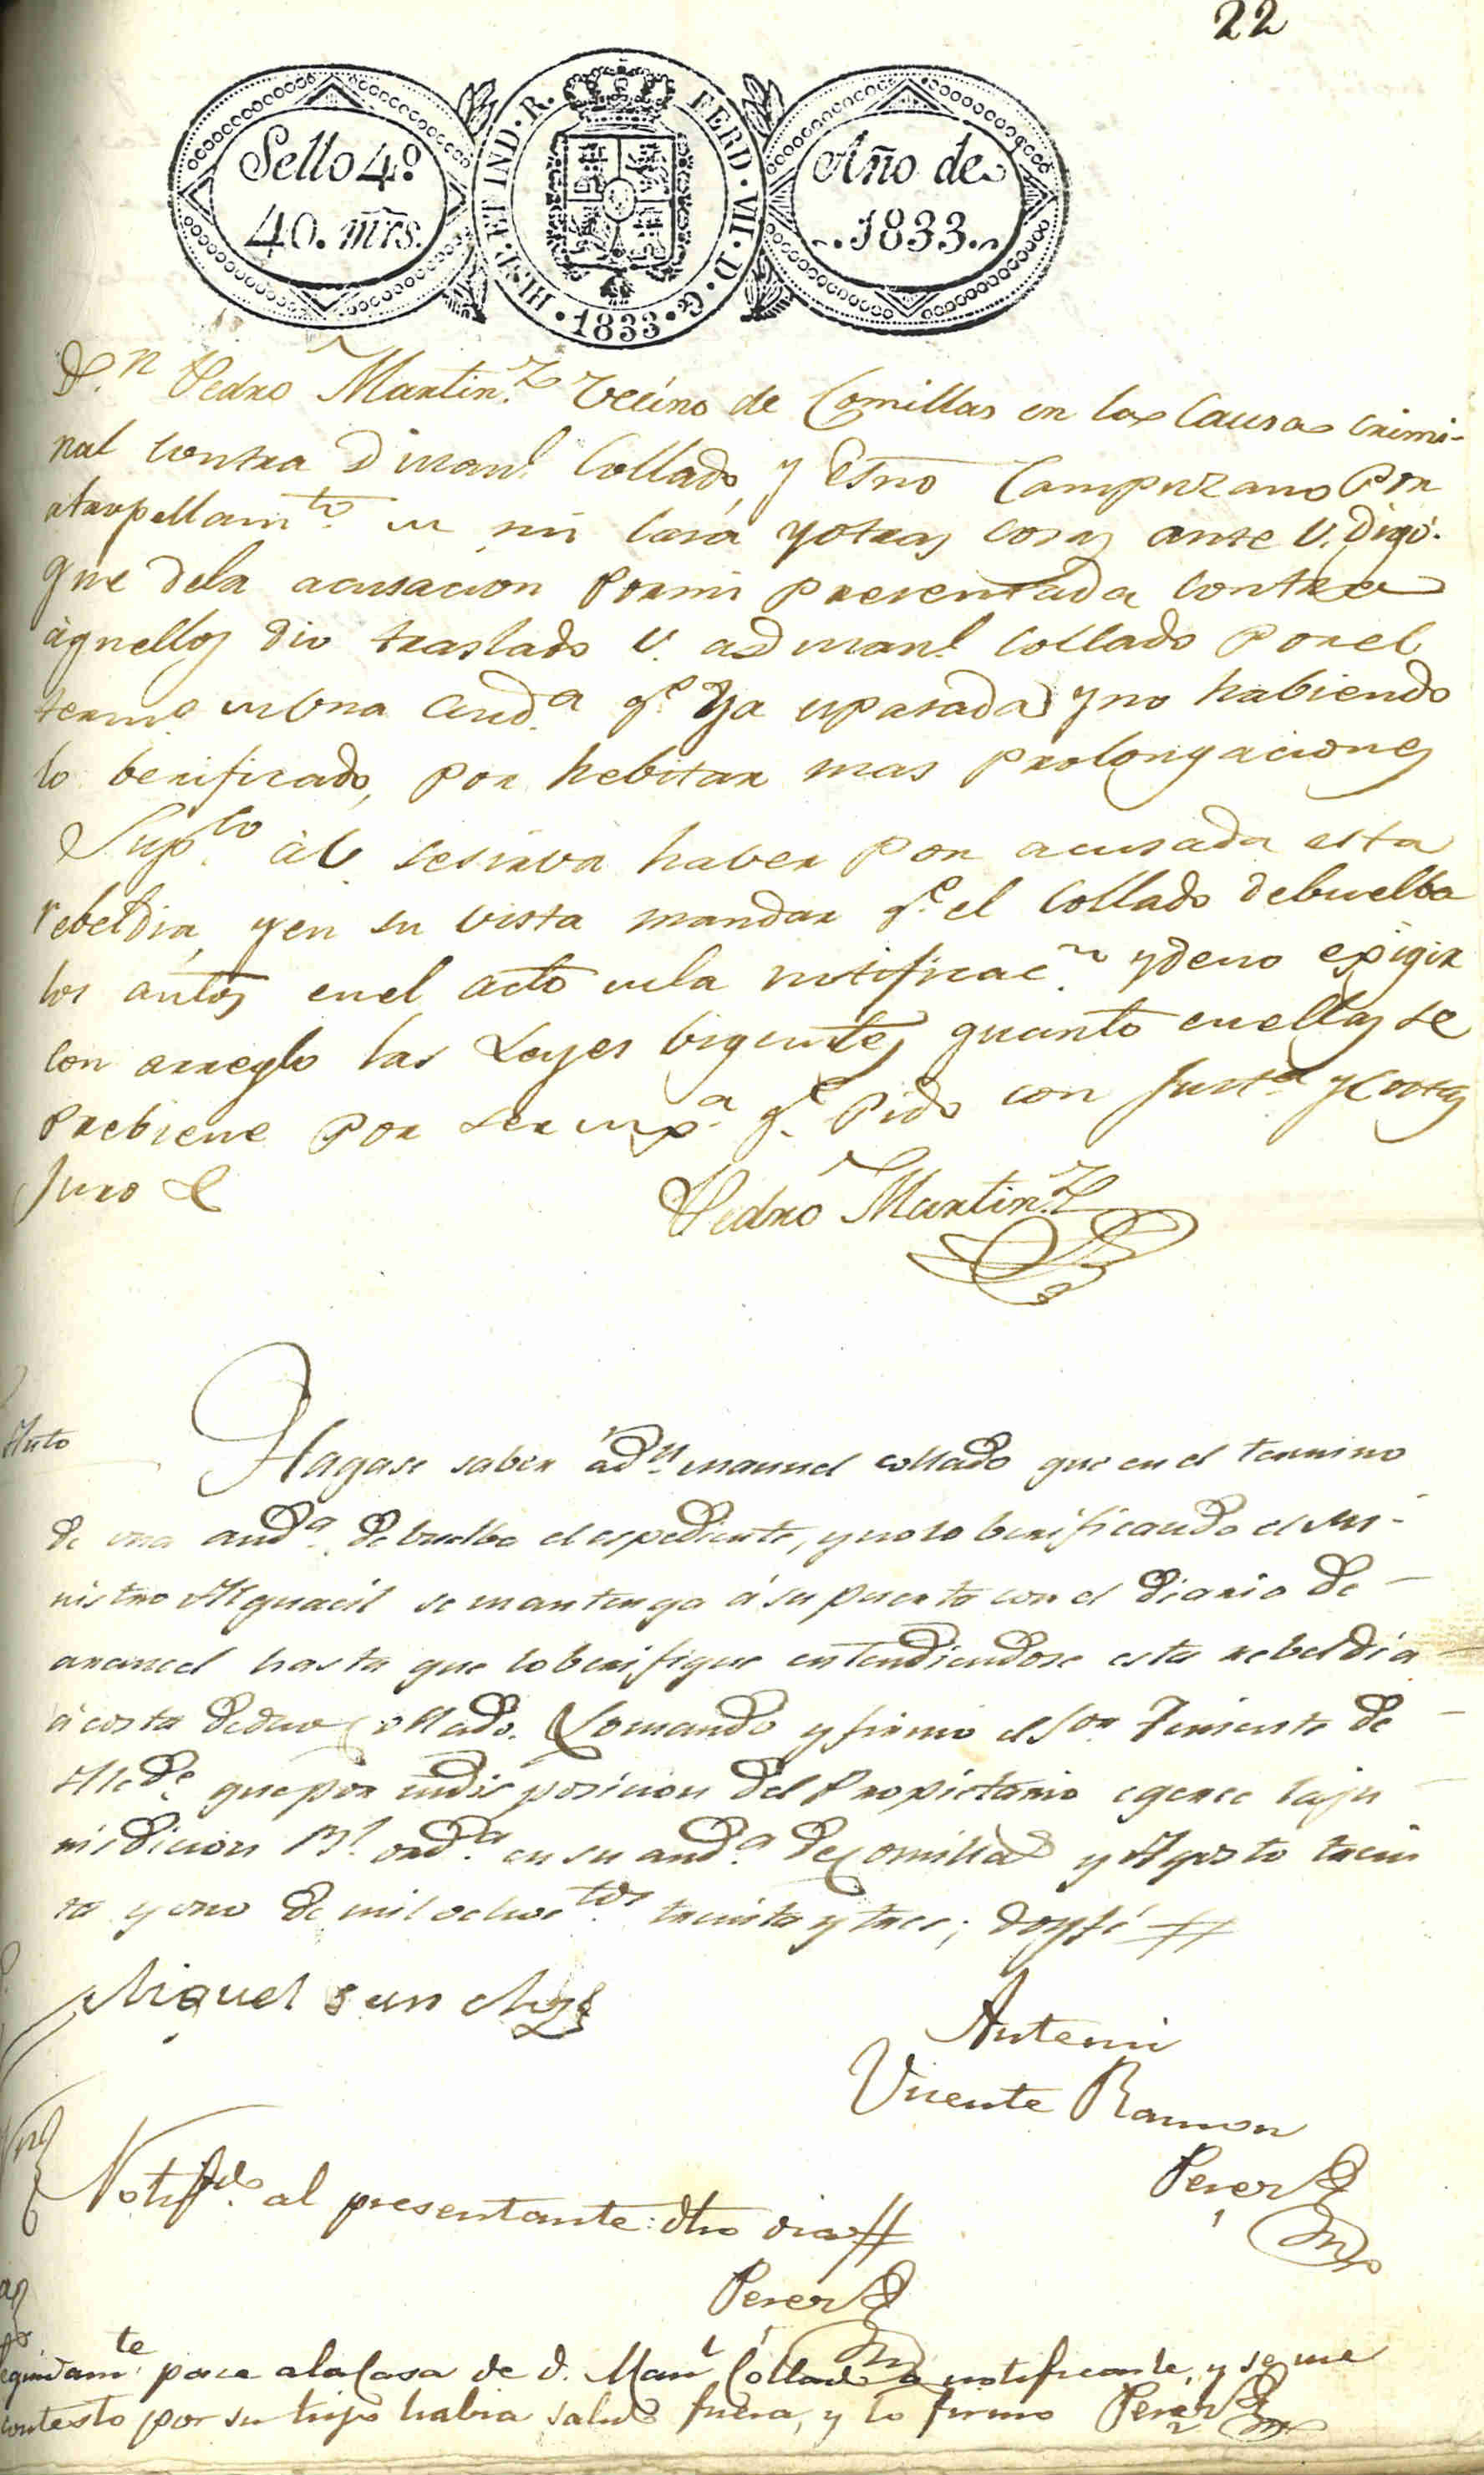 22
Sello 4.º
40. mrs.
HISP. ET IND. R. FERD. VII. D. G. 1833
Año de
1833
D.n Pedro Martin.z Vecino de Comillas en la Causa crimi-
nal contra D Man.l Collado, y Esno Campuzano por
atropellam.to en mi casa y otras cosas ante V. digo.
que dela acusacion por mi presentada contra
aquellos dio traslado V. a D Man.l Collado por el
term.o de una aud.a q.e Ya es pasada y no habiendo
lo berificado, por hebitar mas prolongaciones
Sup.co à V. se sirva haber por acusada esta
rebeldia, y en su vista mandar q.e el Collado debuelba
los autos en el acto de la notificac.n y de no exigir
con arreglo las Leyes bigentes quanto en ellas se
prebiene por ser q.e pido con just.a y costas
Juro &
Pedro Martin.z
Auto
Hagase saber à d.n Manuel Collado que en el termino
de una aud.a debuelba el espediente, y no lo berificando el Mi-
nistro Alguacil se mantenga á su puerta con el diario de
arancel hasta que lo berifique entendiendose esta rebeldia
à costa de dho Collado. Lo mando y firmo el S.or Teniente de
Alc.de que por indisposicion del Propietario egerce la ju
risdicion R.l ord.a en su aud.a de Comillas y Agosto trein
ta y uno de mil ochoc.tos treinta y tres; doy fé
Miguel Sanchez
Antemi
Vicente Ramon
Perez
Notif.do al presentante dho dia
Perez
Seguidam.te pase a la Casa de d. Man.l Collado a notificarle, y se me
contesto por su hijo habia salido fuera, y lo firmo Perez